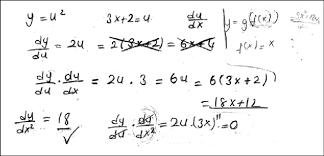 y = u² 3x+2 = u du/dx y = g(f(x))
dy/du = 2u = 2(3x+2) = 6x+4 f(x) = x
dy/du · du/dx = 2u · 3 = 6u = 6(3x+2)
= 18x+12
dy/dx² = 18 ✓ dy/du · du/dx² = 2u · (3x)'' = 0